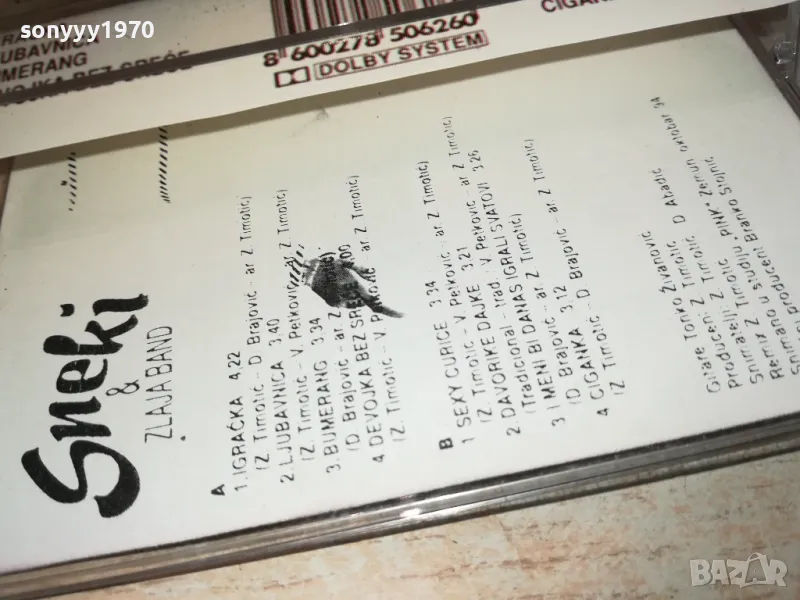 sonyyy1970
LJUBAVNICA
BUMERANG
DEVOJKA BEZ SREĆE
8 600278 506260
DOLBY SYSTEM
CIGAN
Sneki
&
ZLAJA BAND
A
1. IGRAČKA 4,22
(Z Timotić - D Brajović - ar Z Timotić)
2 LJUBAVNICA 3,40
(Z. Timotić - V. Petković ar Z Timotić)
3. BUMERANG 3,34
(D Brajović - ar Z Timotić)
4 DEVOJKA BEZ SREĆE 00
(Z. Timotić - V. ar Z Timotić)
B
1 SEXY CURICE 3,34
(Z. Timotić - V. Petković - ar Z. Timotić)
2. DAVORIKE DAJKE 3,21
(Tradicional - trad. : V Petković - ar Z. Timotić)
3 I MENI BI DANAS IGRALI SVATOVI 3,25
(D Brajović - ar. Z Timotić)
4 CIGANKA 3,12
(Z Timotić - D. Brajović - ar Z. Timotić)
Gitare Tonko Živanović
Producent Z Timotić D Abadić
Pratelji Z Timotić
Snimano u studiju „PINK“ Zemun oktobar 94
Remix Z Timotić
Snimatelj Branko Stojnić
BAZAR